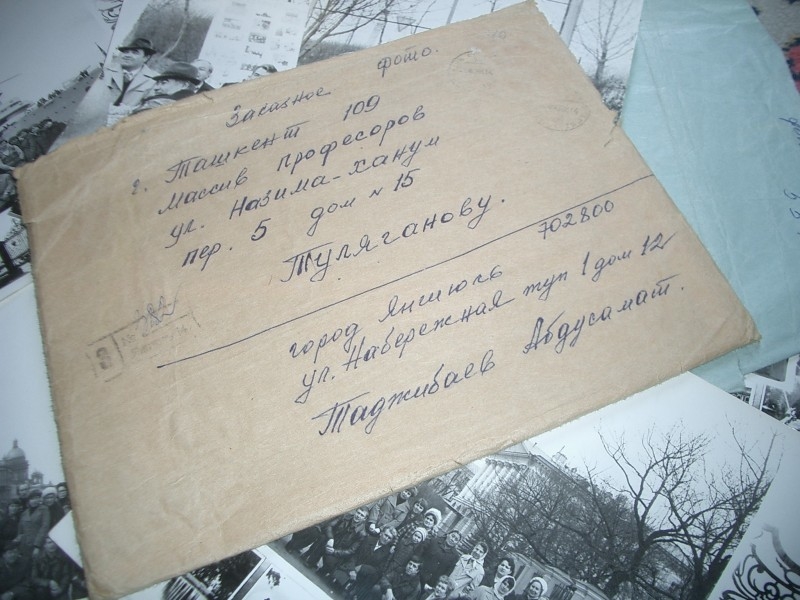 Заказное фото.
г. Ташкент 109
Массив професоров
ул. Назима-ханум
пер. 5 дом № 15
Туляганову.
702800
город Янгиюль
ул. Набережная туп 1 дом 12
Таджибаев Абдусамат.
З
№ 282